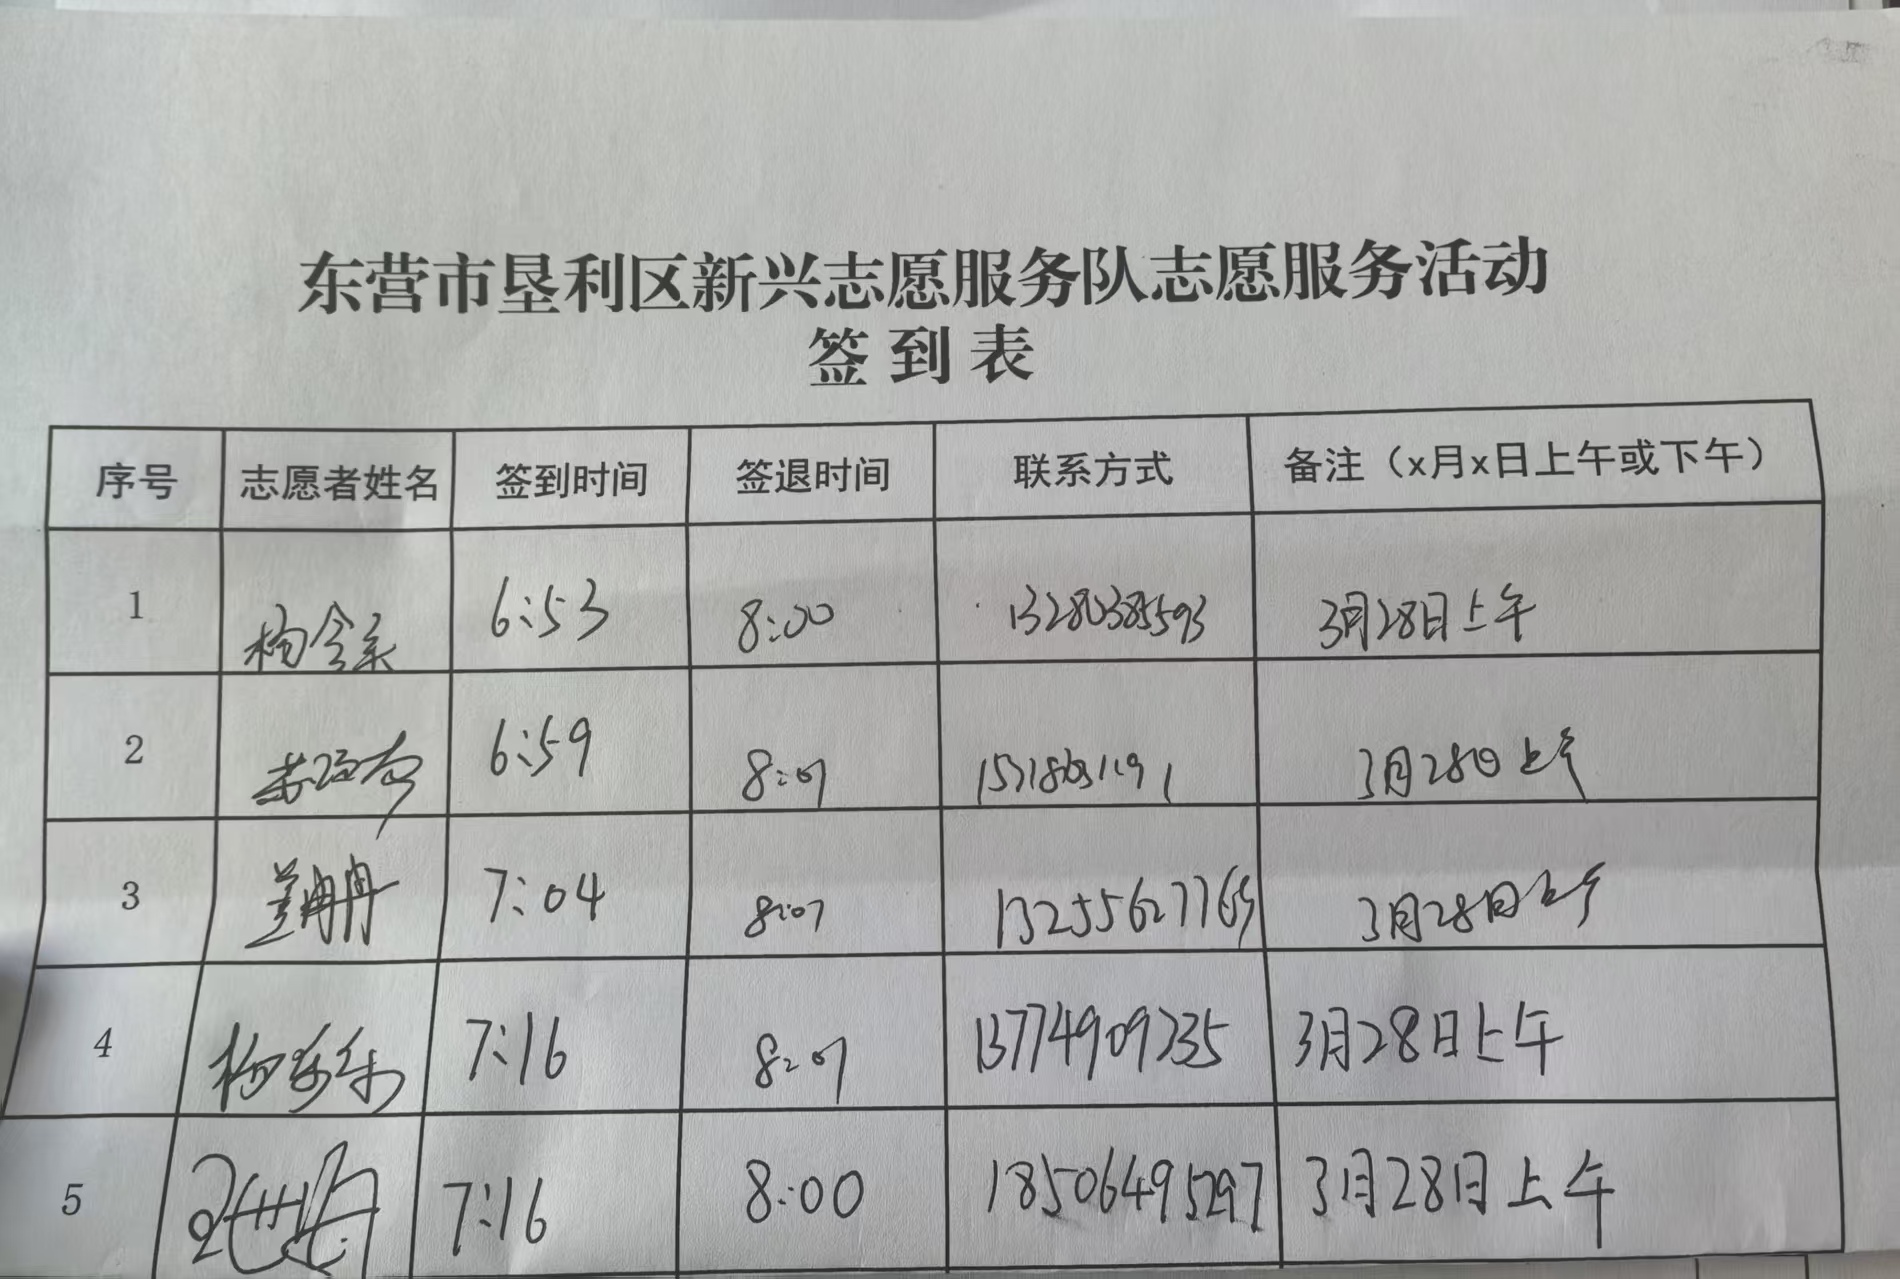 东营市垦利区新兴志愿服务队志愿服务活动
签到表
序号 志愿者姓名 签到时间 签退时间 联系方式 备注（x月x日上午或下午）
1 6:53 8:00 13280385593 3月28日上午
2 6:59 8:07 3月28日上午
3 7:04 8:07 3月28日上午
4 7:16 8:07 13774909235 3月28日上午
5 7:16 8:00 18506495297 3月28日上午